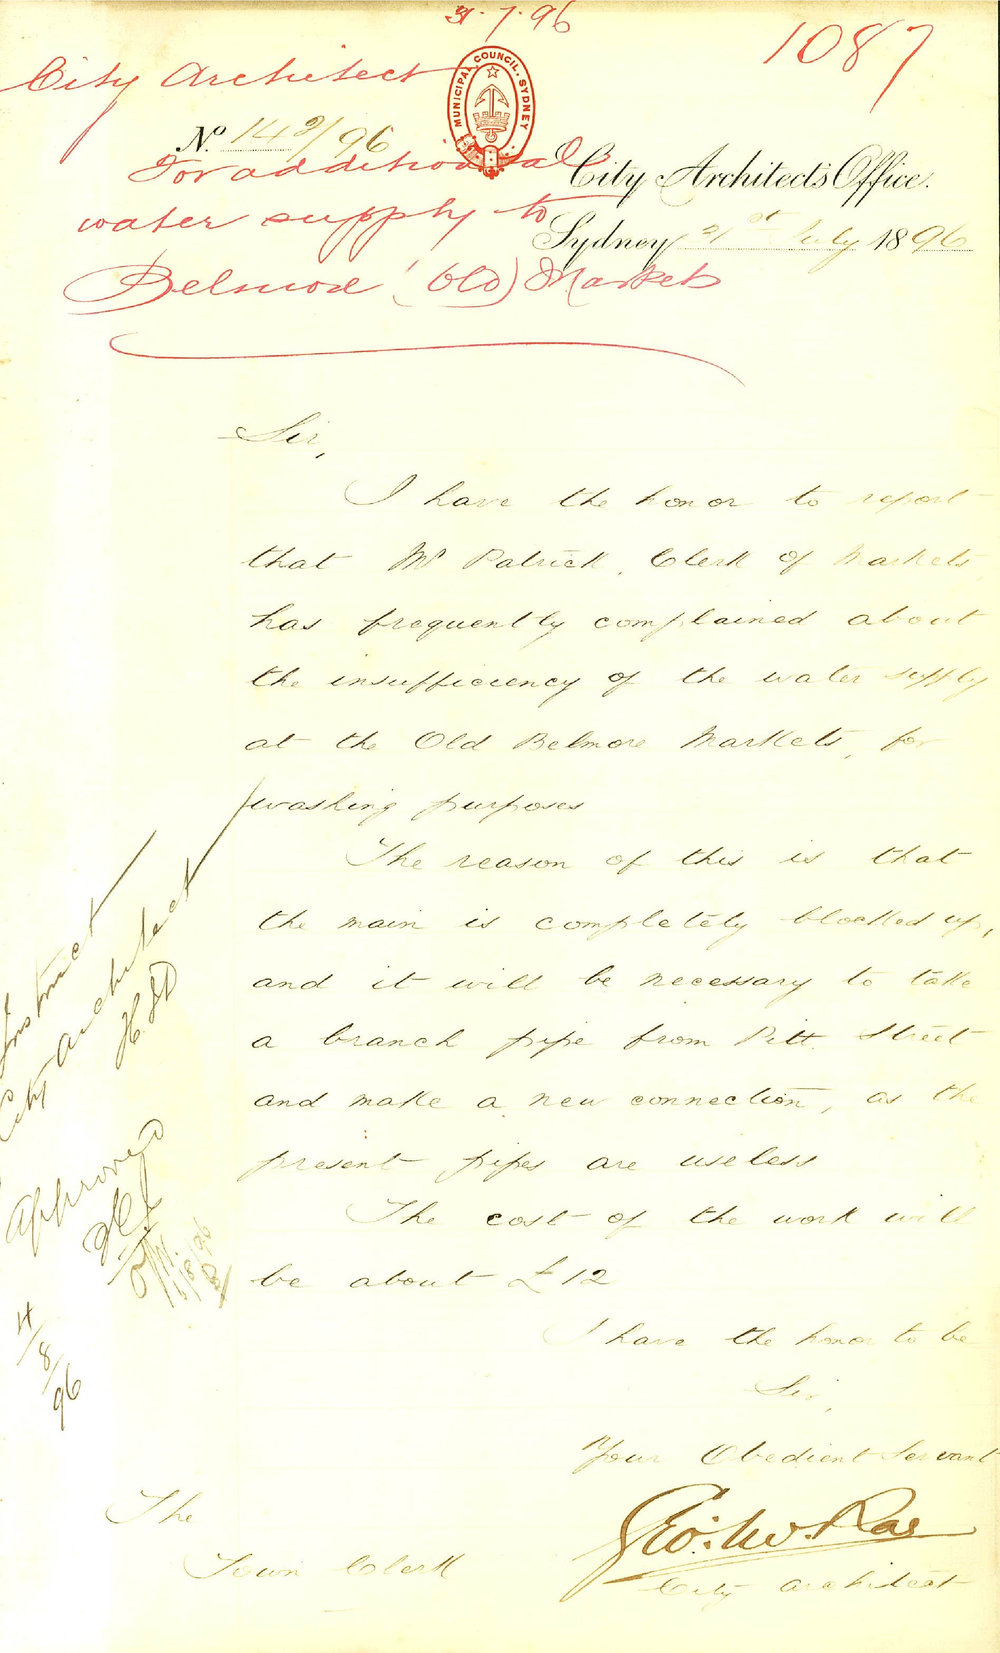 31.7.96
1087
City Architect
MUNICIPAL COUNCIL. SYDNEY
No. 149/96
For additional
City Architect's Office.
water supply to
Sydney, 31st July 1896
Belmore (Old) Markets
Sir,
I have the honor to report
that Mr Patrick, Clerk of Markets,
has frequently complained about
the insufficiency of the water supply
at the Old Belmore Markets, for
washing purposes
The reason of this is that
the main is completely blocked up,
and it will be necessary to take
a branch pipe from Pitt Street
and make a new connection, as the
present pipes are useless
The cost of the work will
be about £12
I have the honor to be
Sir,
Your Obedient Servant
Geo: McRae
City Architect
The
Town Clerk
Instruct
City Architect
Approved
4/8/96